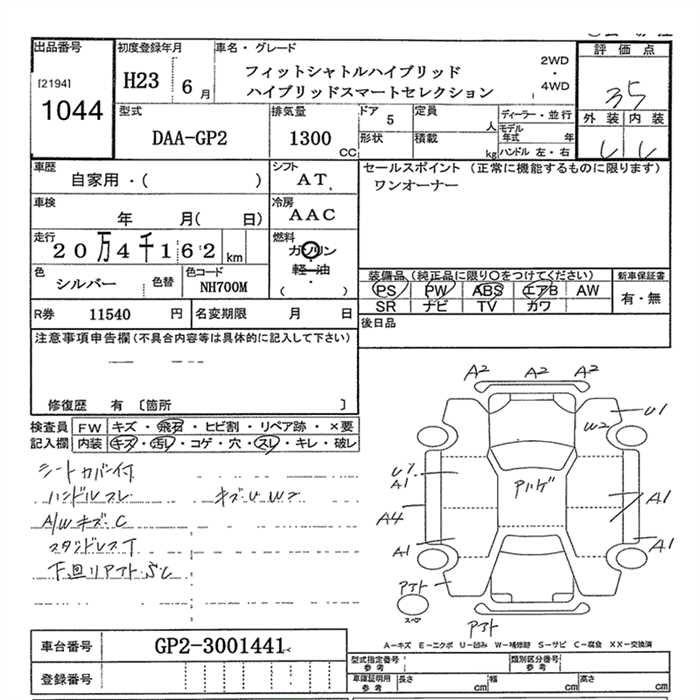 出品番号
[2194]
1044
初度登録年月
H23 6 月
車名・グレード
フィットシャトルハイブリッド
ハイブリッドスマートセレクション
2WD
・
4WD
評価点
35
外装 内装
型式
DAA-GP2
排気量
1300 CC
ドア 5
形状
定員 人
積載 kg
ディーラー・並行
モデル年式 年
ハンドル 左・右
車歴
自家用・( )
シフト
AT
車検
年 月( 日)
冷房
AAC
走行
20万4千162 km
燃料
ガソリン
・
軽・油
( )
色
シルバー
色替
色コード
NH700M
R券 11540 円
名変期限 月 日
セールスポイント(正常に機能するものに限ります)
ワンオーナー
装備品(純正品に限り○をつけてください)
PS PW ABS エアB AW
SR ナビ TV カワ
新車保証書
有・無
後日品
注意事項申告欄(不具合内容等は具体的に記入して下さい)
修復歴 有 〔箇所 〕
検査員記入欄
FW キズ・飛石・ヒビ割・リペア跡・×要
内装 キズ・汚レ・コゲ・穴・スレ・キレ・破レ
シートカバー付
ハンドルスレ キズU W2
A/Wキズ・C
スタッドレスT
下回リアフト・SC
A2 A2 A2
U1
W2
A1
A4
A1
A1
A1
スペア
A－キズ E－エクボ U－凹み W－補修跡 S－サビ C－腐食 XX－交換済
車台番号 GP2-3001441
登録番号
型式指定番号
参考
類別区分番号
参考
車庫証明用
参考
長さ cm
幅 cm
高さ cm